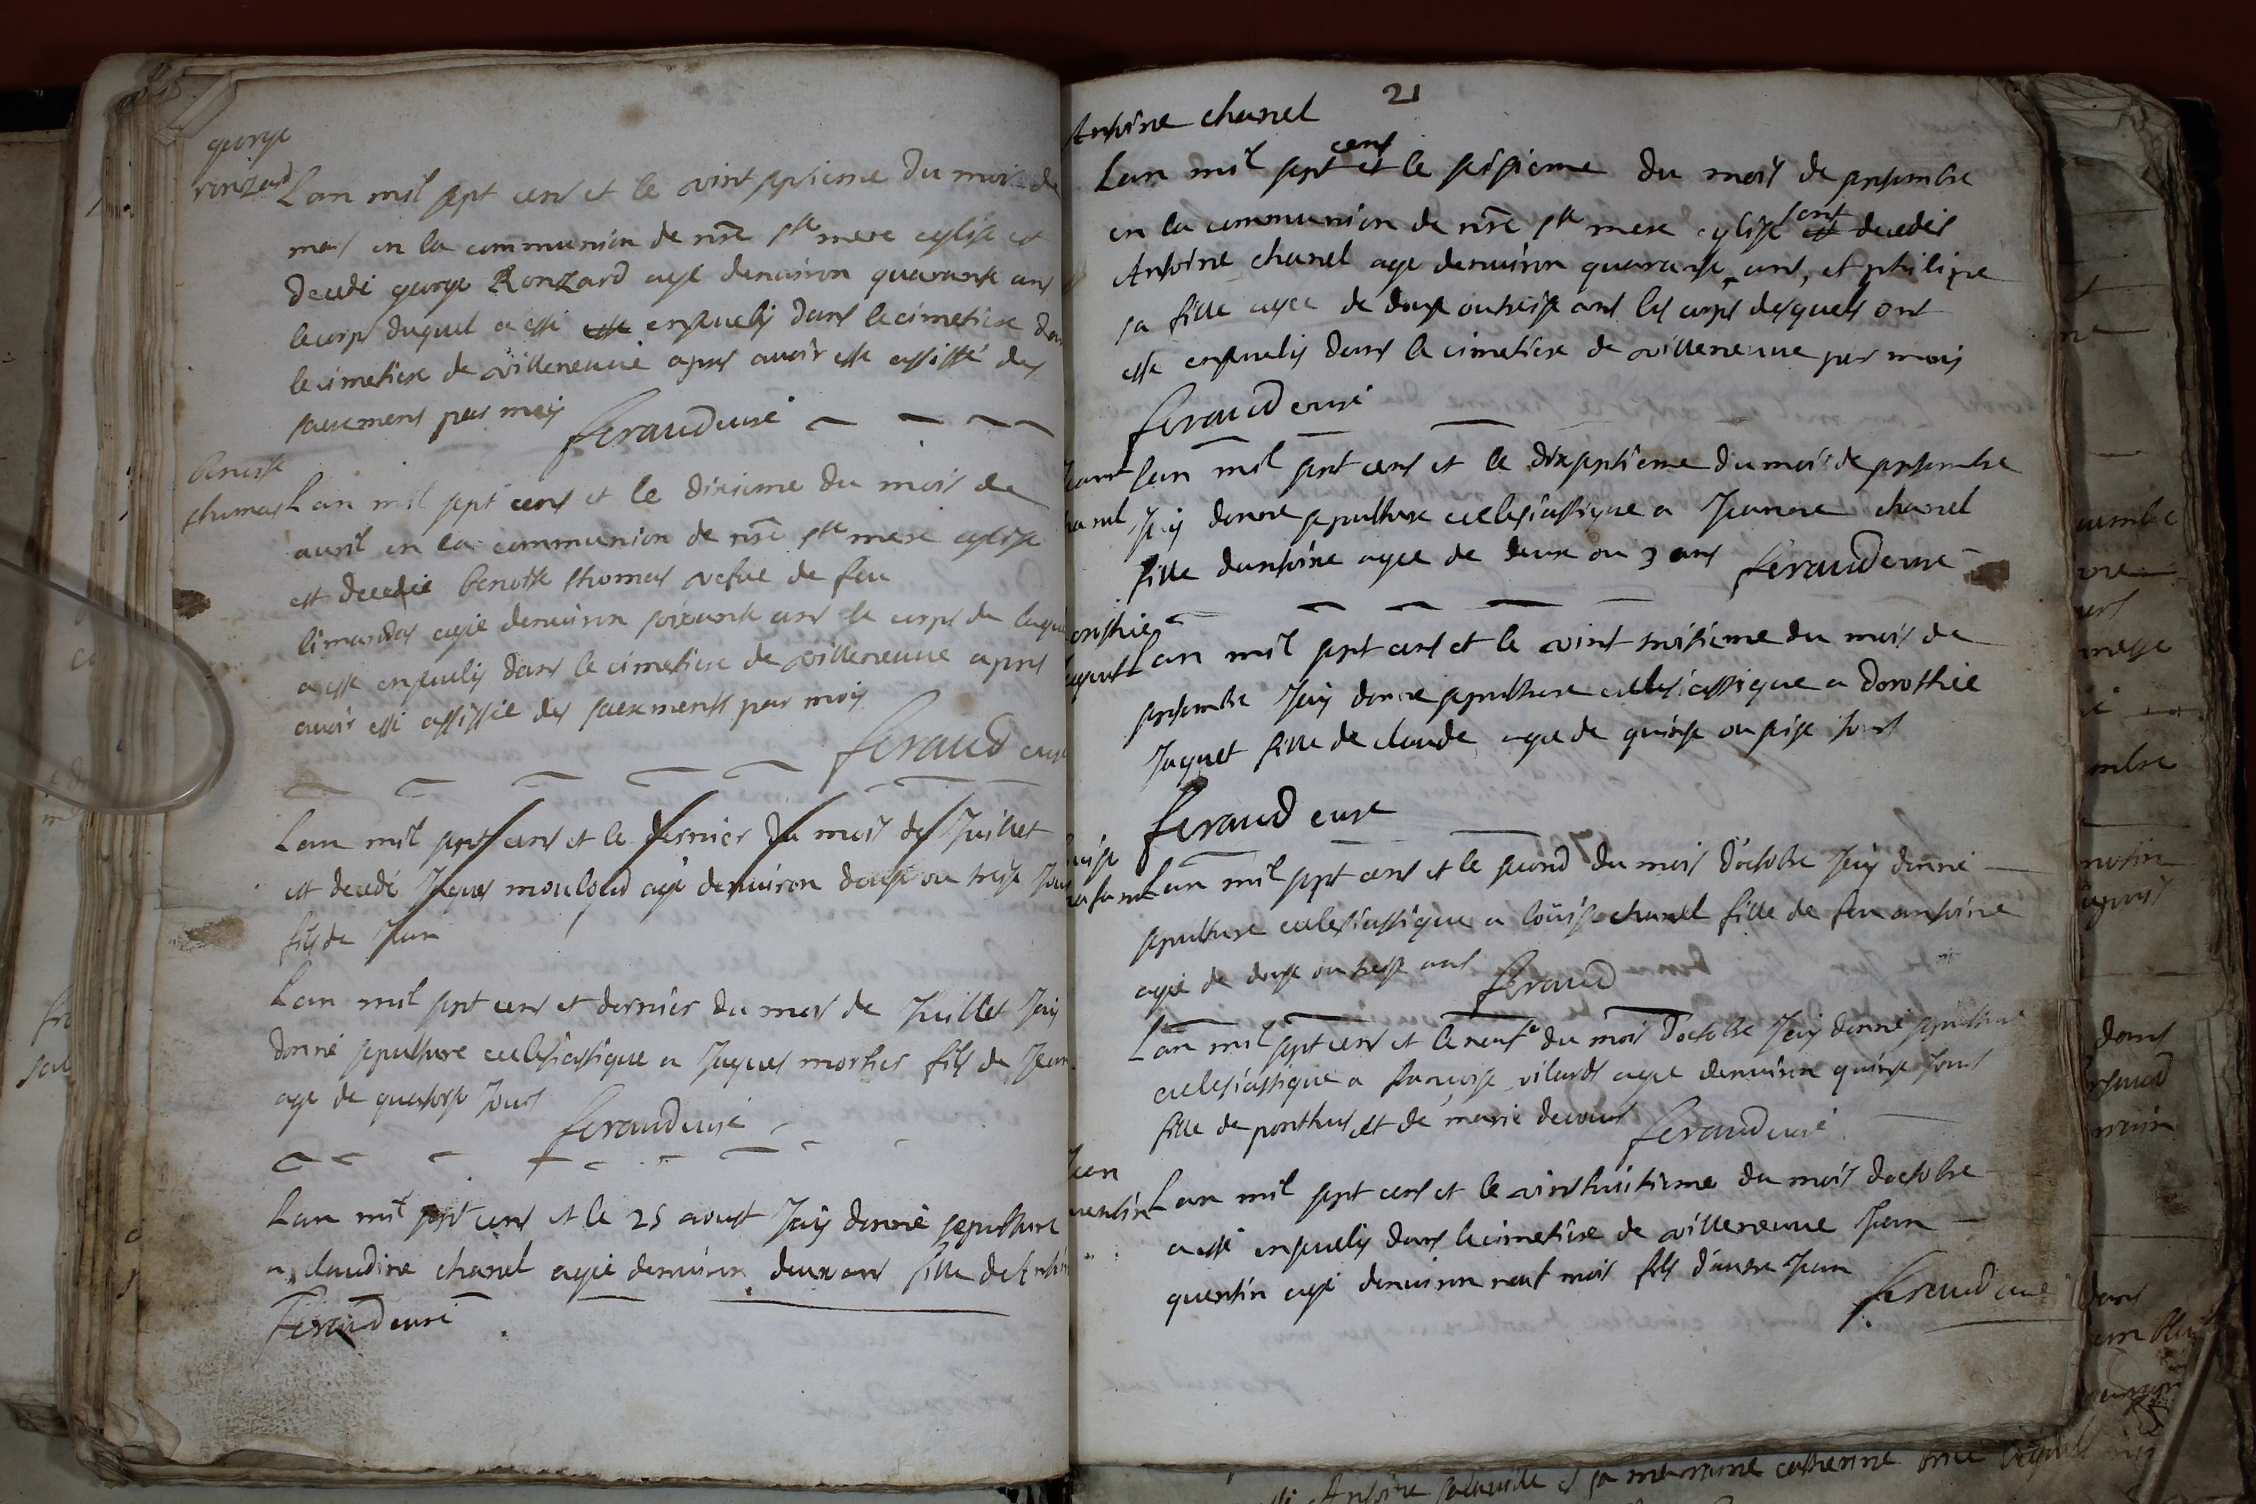 george
ronzard
Lan mil sept cens et le vint septieme du mois de
mars en la communion de nre ste mere eglise est
decedé george Ronzard agé denuiron quarante ans
le corps duquel a esté enseuely dans le cimetiere dans
le cimetiere de villeneuue apres auoir esté assisté des
sacremens par moy
feraud curé
benoiste
thomas
Lan mil sept cens et le dixieme du mois de
auril en la communion de nre ste mere eglise
est decedee benoiste thomas vefue de feu
limandas agée denuiron soixante ans le corps de laquelle
a esté enseuely dans le cimetiere de villeneuue apres
auoir esté assistée des sacrements par moy
feraud curé
Lan mil sept cens et le dernier du mois de Juillet
est decedé Jaques agé denuiron douse ou treise Jours
fils de Jean
Lan mil sept cens et dernier du mois de Juillet Jay
donné sepulture ecclesiastique a Jaques mortier fils de Jean
age de quatorse Jours
feraud curé
Lan mil sept cens et le 25 aoust Jay donné sepulture
a claudine chanel agée denuiron deux ans fille de Antoine
feraud curé
21
Antoine chanel
Lan mil sept cens et le seisieme du mois de septembre
en la communion de nre ste mere eglise sont decedés
Antoine chanel age denuiron quarante ans, et philipe
sa fille agee de douse ou treise ans les corps desquels ont
esté enseuelis dans le cimetiere de villeneuue par moy
feraud curé
chanel
Lan mil sept cens et le dixseptieme du mois de septembre
Jay donné sepulture ecclesiastique a Jeanne chanel
fille dantoine agee de deux ou 3 ans feraud curé
Lan mil sept cens et le vint troisieme du mois de
septembre Jay donné sepulture ecclesiastique a dorothée
Jaquet fille de claude agee de quinse ou seise Jours
feraud curé
Lan mil sept cens et le second du mois doctobre Jay donné
sepulture ecclesiastique a loüise chanel fille de feu antoine
agée de douse ou treise ans
feraud
Lan mil sept cens et le neufe du mois doctobre Jay donné sepulture
ecclesiastique a francoise vilards agee denuiron quinse Jours
fille de ponthus et de marie
feraud curé
Jean
quentin
Lan mil sept cens et le vinthuitieme du mois doctobre
a esté enseuely dans le cimetiere de villeneuue Jean
quentin agé denuiron neuf mois fils dautre Jean
feraud curé